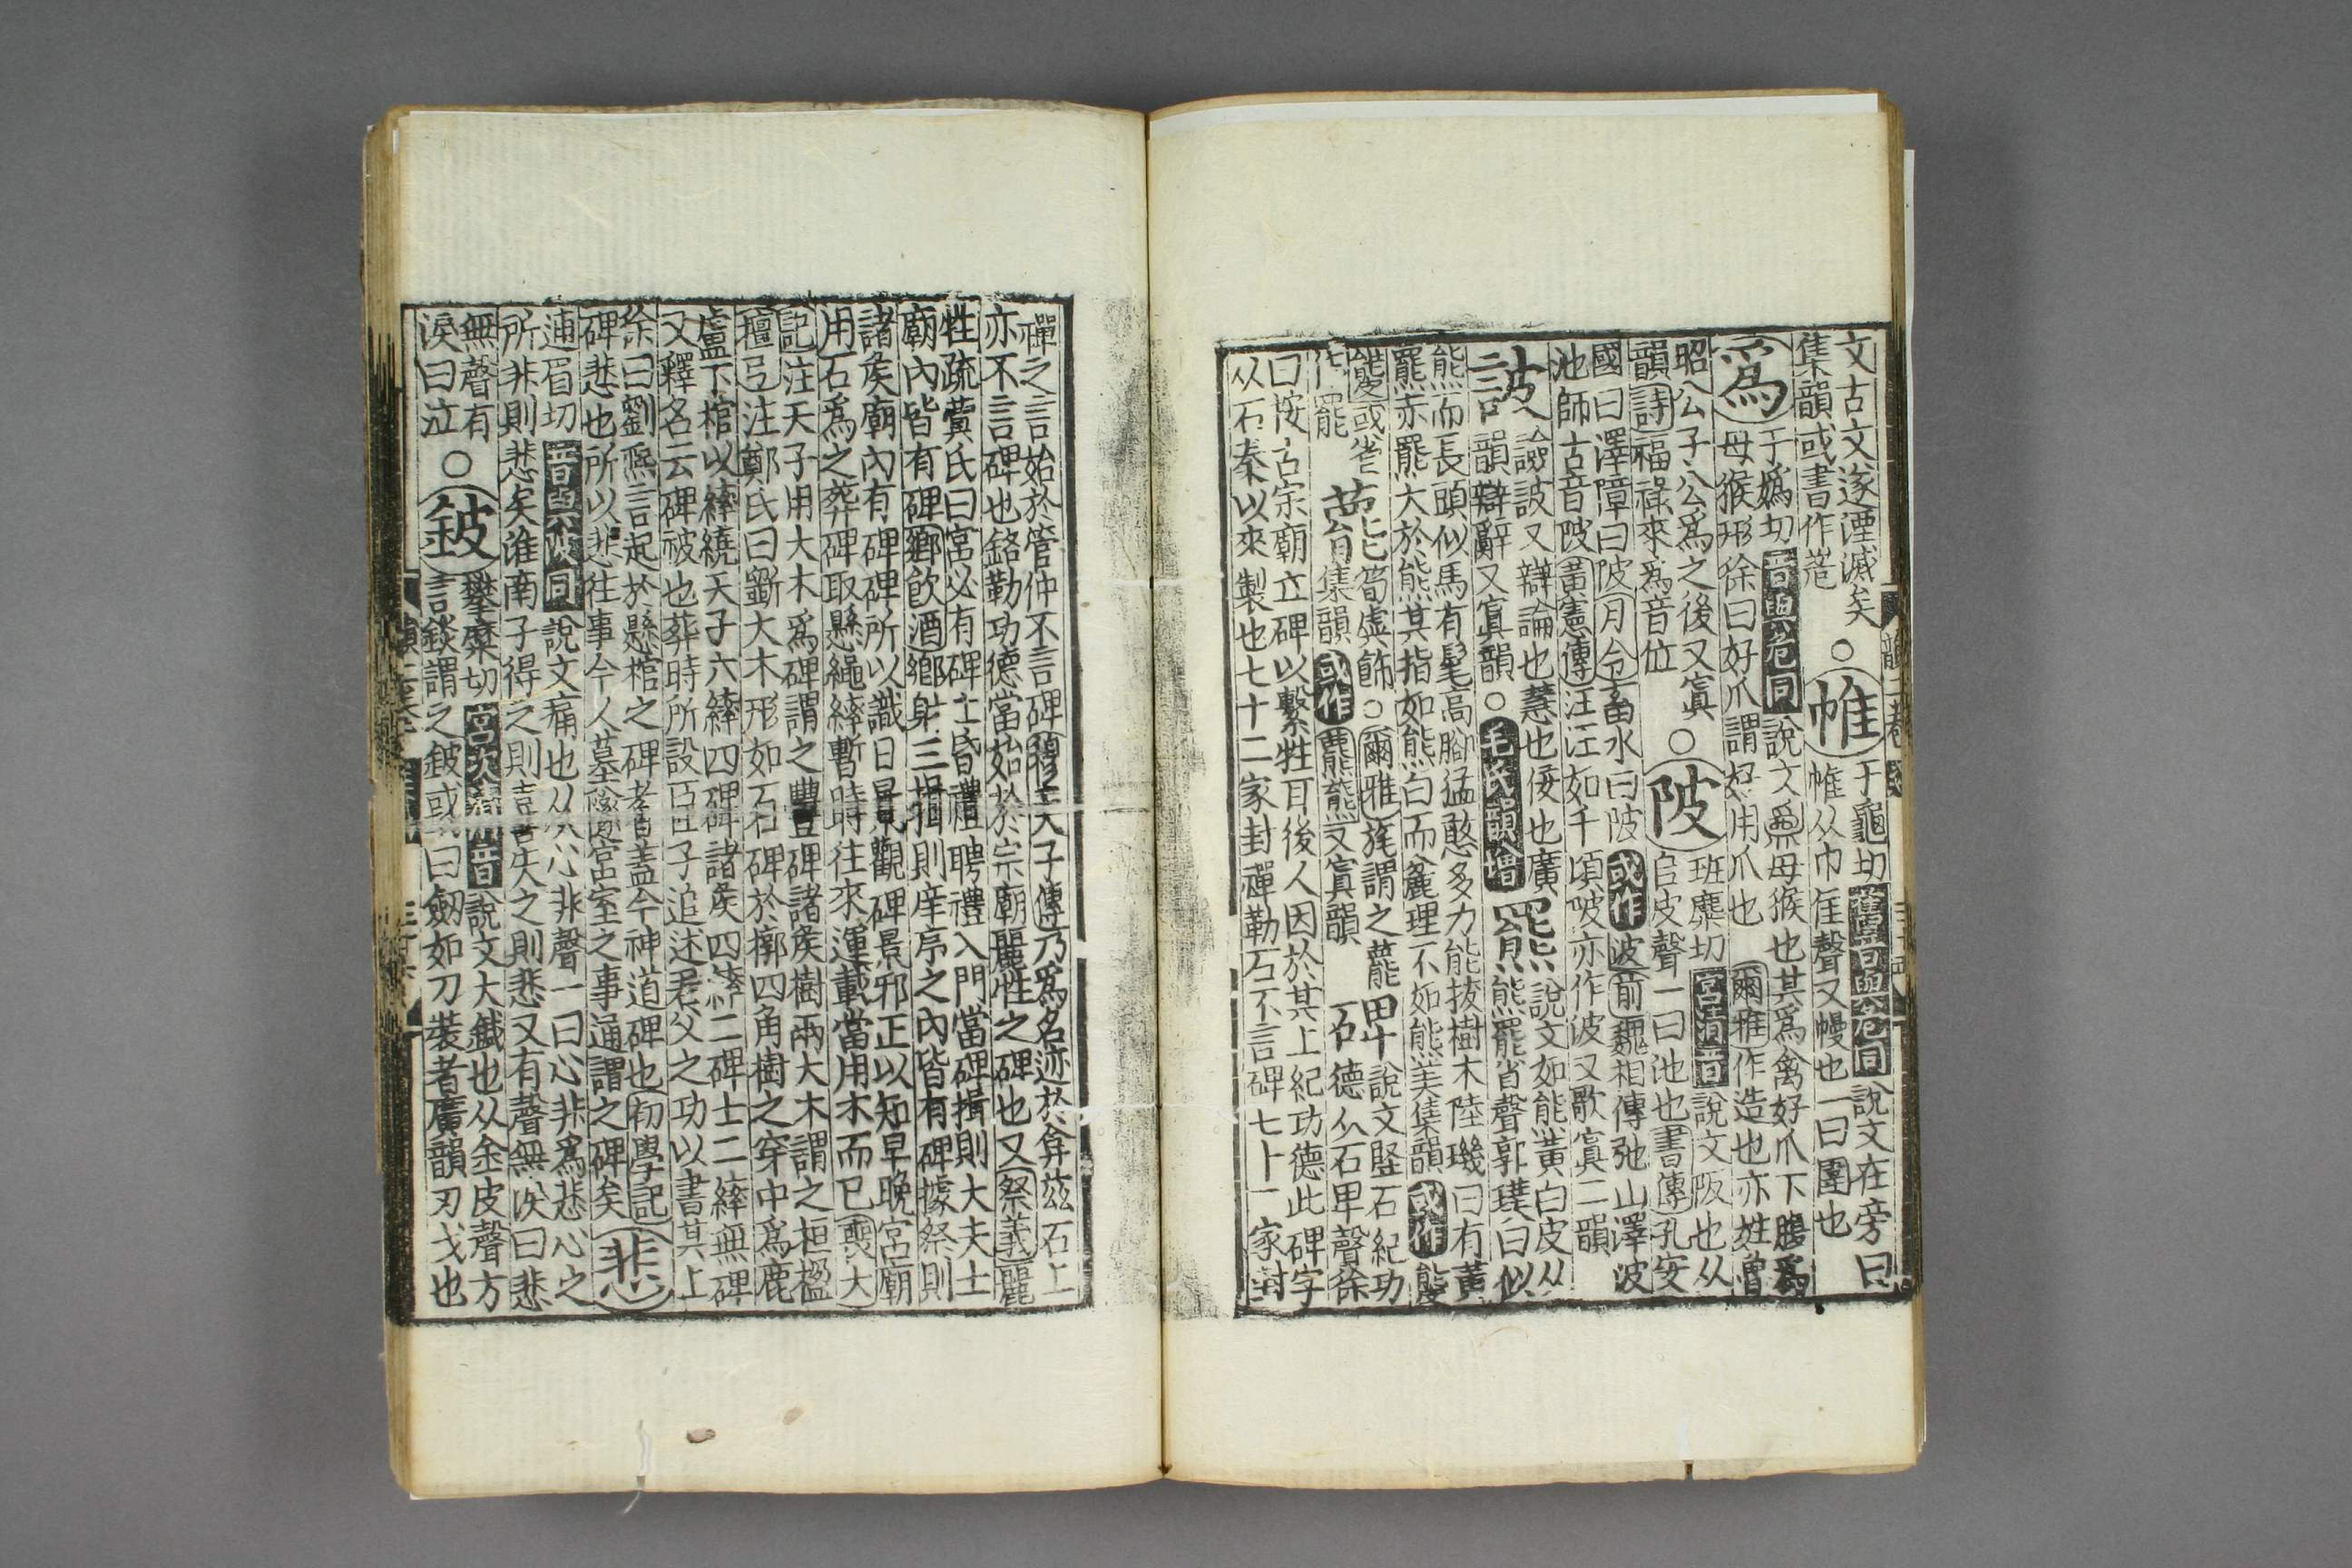 文古文遂湮滅矣○帷于龜切舊韻與危同說文在旁曰
集韻或書作𦳢 帷从巾隹聲又幔也一曰圍也
爲于嬀切音與危同說文爲母猴也其爲禽好爪下腹爲
母猴形徐曰好爪謂好用爪也爾雅作造也亦姓魯
昭公子公爲之後又寘○陂班糜切宮清音說文阪也从
韻詩福祿來爲音位 𨸏皮聲一曰池也書傳孔安
國曰澤障曰陂月令畜水曰陂或作波前魏相傳弛山澤波
池師古音陂黃憲傳汪汪如千頃陂亦作波又歌寘二韻
詖險詖又辯論也慧也佞也廣
韻辯辭又寘韻○毛氏韻增羆說文如熊黃白皮从
熊罷省聲郭璞曰似
熊而長頭似馬有髦高腳猛憨多力能拔樹木陸璣曰有黃
羆赤羆大於熊其指如熊白而麤理不如熊美集韻或作
筍虡飾○爾雅旄謂之藣 碑說文竪石紀功
集韻或作又寘韻 德从石卑聲徐
曰按古宗廟立碑以繫牲耳後人因於其上紀功德此碑字
从石秦以來製也七十二家封禪勒石不言碑七十一家封
禪之言始於管仲不言碑穆天子傳乃爲名迹於弇茲石上
亦不言碑也銘勒功德當始於宗廟麗牲之碑也又祭義麗
牲疏賈氏曰宮必有碑士昏禮聘禮入門當碑揖則大夫士
廟內皆有碑鄉飮酒鄉射三揖則庠序之內皆有碑據祭則
諸矦廟內有碑碑所以識日景觀碑景邪正以知早晚宮廟
用石爲之葬碑取懸繩繂暫時往來運載當用木而已喪大
記注天子用大木爲碑謂之豐碑諸矦樹兩大木謂之桓楹
檀弓注鄭氏曰斲大木形如石碑於槨四角樹之穿中爲鹿
盧下棺以繂繞天子六繂四碑諸矦四繂二碑士二繂無碑
又釋名云碑被也葬時所設臣子追述君父之功以書其上
徐曰劉熈言起於懸棺之碑者蓋今神道碑也初學記
碑悲也所以悲往事今人墓隧宮室之事通謂之碑矣悲
逋眉切音與陂同說文痛也从心非聲一曰心非爲悲心之
所非則悲矣淮南子得之則喜失之則悲又有聲無淚曰悲
無聲有
淚曰泣○鈹攀糜切宮次清音說文大鍼也从金皮聲方
言錟謂之鈹或曰劒如刀裝者廣韻刃戈也